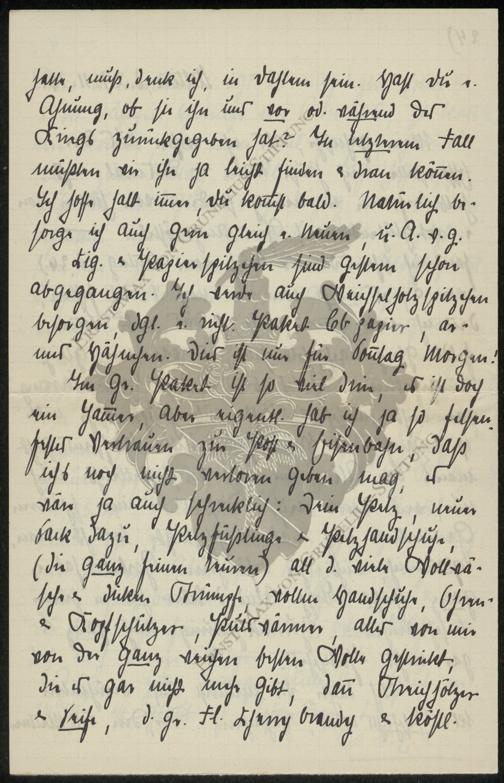 hatte, muß, denk ich, in Dahlem sein. Hast du e.
Ahnung, ob sie ihn uns vor od. während des
Kriegs zurückgegeben hat? In letzterem Fall
müßten wir ihn ja leicht finden & dran können.
Ich hoffe halt immer, du kommst bald. Natürlich be-
sorge ich auch gern gleich e. Neuen, u. A. w. g.
Zig. & Papierspitzchen sind gestern schon
abgegangen. Ich werde auch Weichselholzspitzchen
besorgen, dgl. e. richt. Paket Cbpapier, er-
und Hähnchen. Dies ist nur für Sonntag Morgen!
Im gr. Paket ist so viel drin, es ist doch
ein Jammer, aber eigentl. hab ich ja so felsen-
festes Vertrauen zur Post & Eisenbahn, daß
ichs noch nicht verloren geben mag, es
wär ja auch schrecklich: Dein Pelz, neuer
Sack dazu, Pelzfüßlinge & Pelzhandschuhe,
(die ganz feinen teuren) all d. viele Wollwä-
sche & dicken Strümpfe, wollne Handschuhe, Ohren-
& Kopfschützer, Pulswärmer, alles von mir
von der ganz weichen besten Wolle gestrickt,
die es gar nicht mehr gibt, dann Streichhölzer
& Seife, d. gr. Fl. Cherry brandy & köstl.